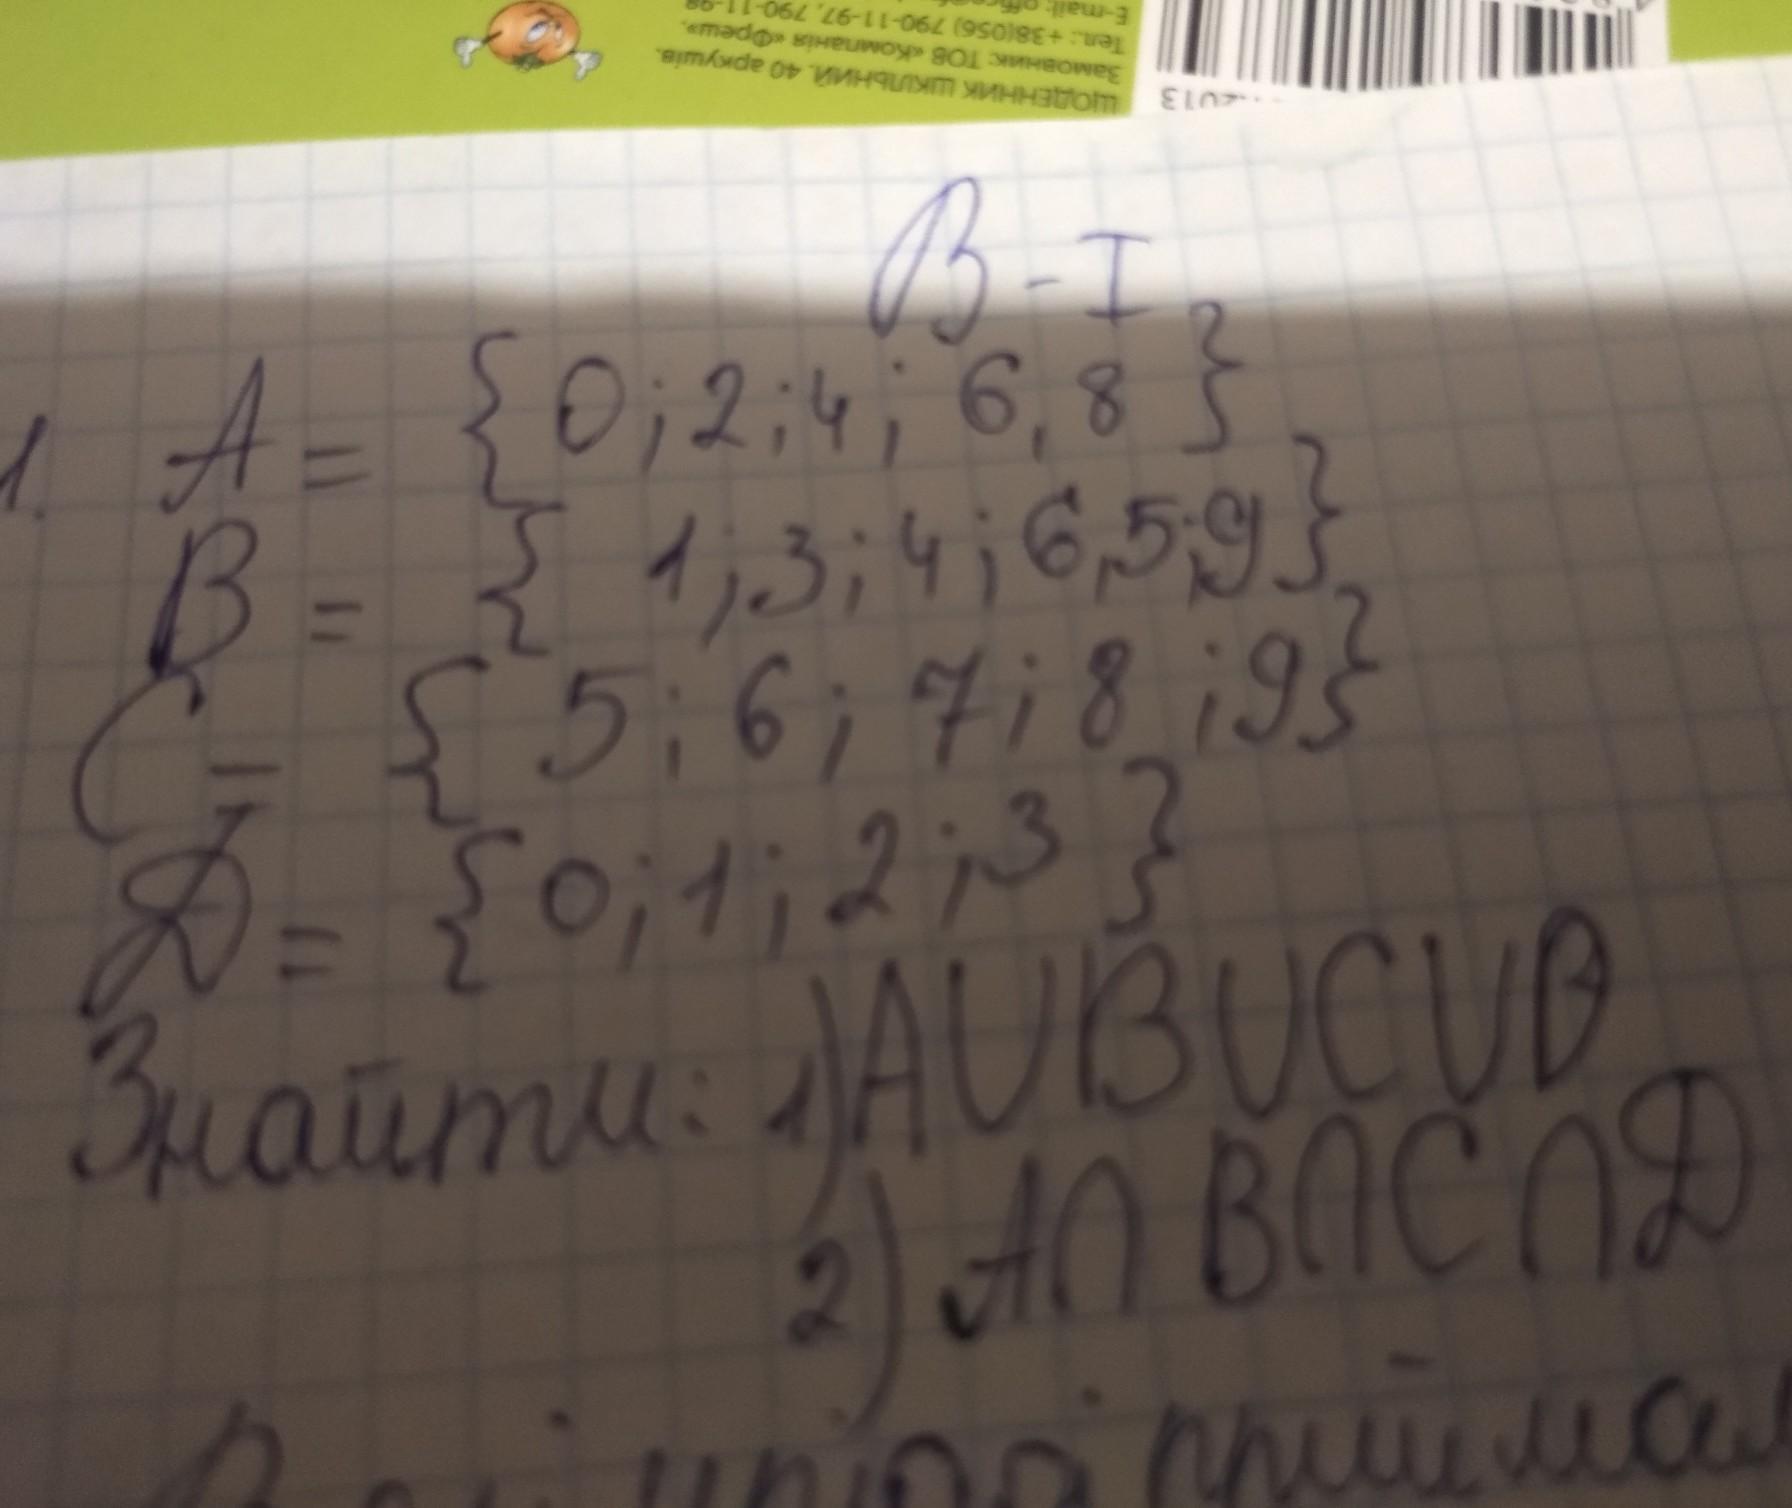 E-mail:
Тел.: +38(056) 790-11-97, 790-11-98
Замовник: ТОВ «Компанія «Фреш».
ЩОДЕННИК ШКІЛЬНИЙ. 40 аркушів.
2013
В-I
1. A = {0; 2; 4; 6, 8}
B = {1; 3; 4; 6, 5; 9}
C = {5; 6; 7; 8; 9}
D = {0; 1; 2; 3}
Знайти: 1) A∪B∪C∪D
2) A∩B∩C∩D